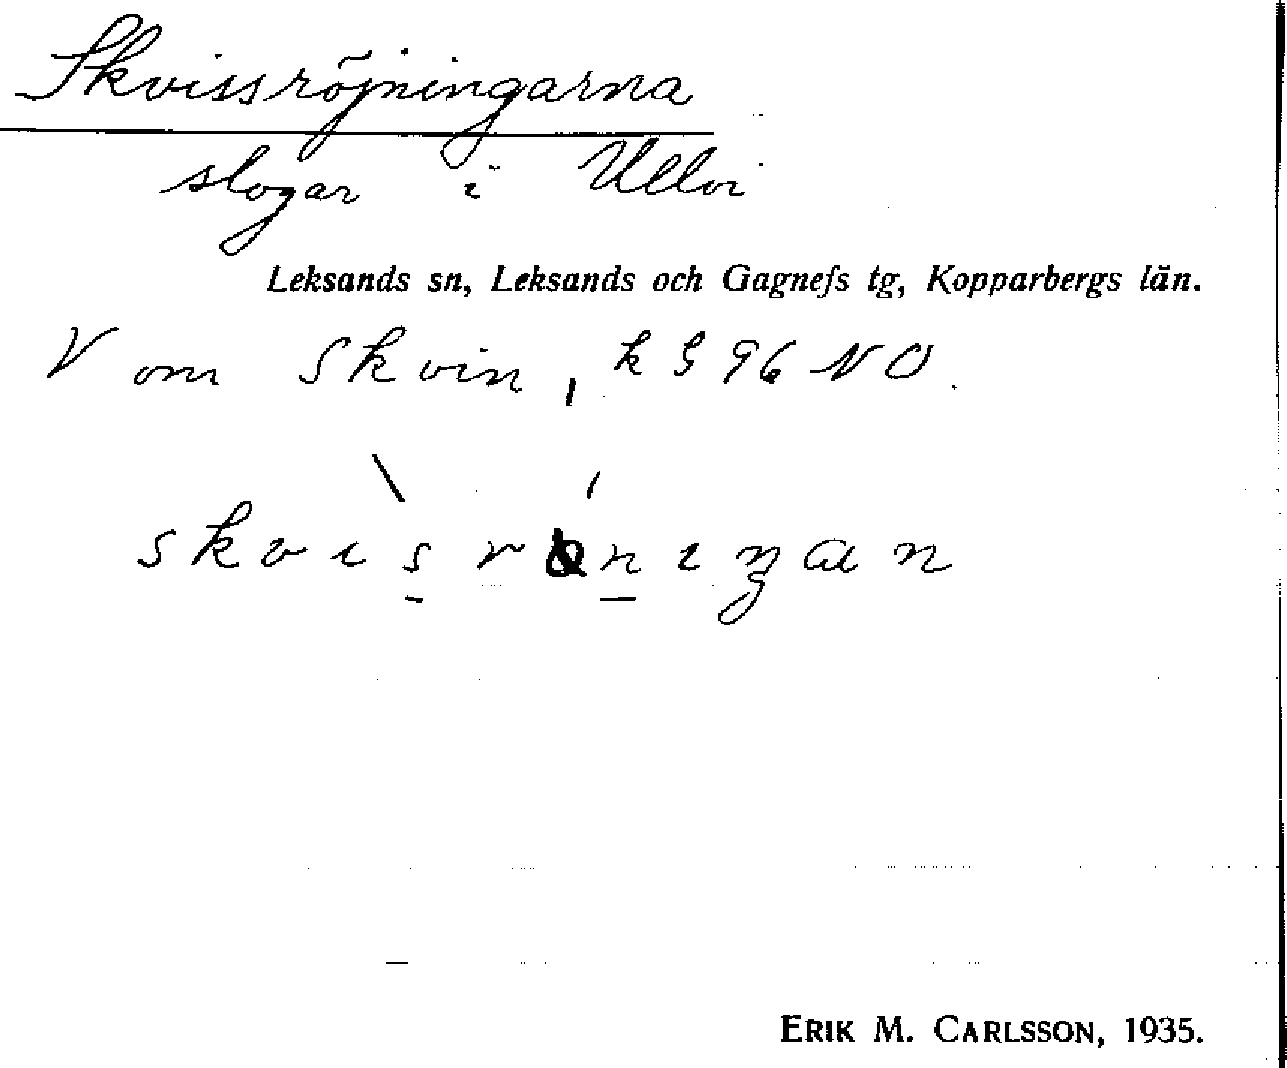 Skvissröjningarna
slogar i Ullvi
Leksands sn, Leksands och Gagnefs tg, Kopparbergs län.
V om Skvin, k G 96 NO.
ERIK M. CARLSSON, 1935.